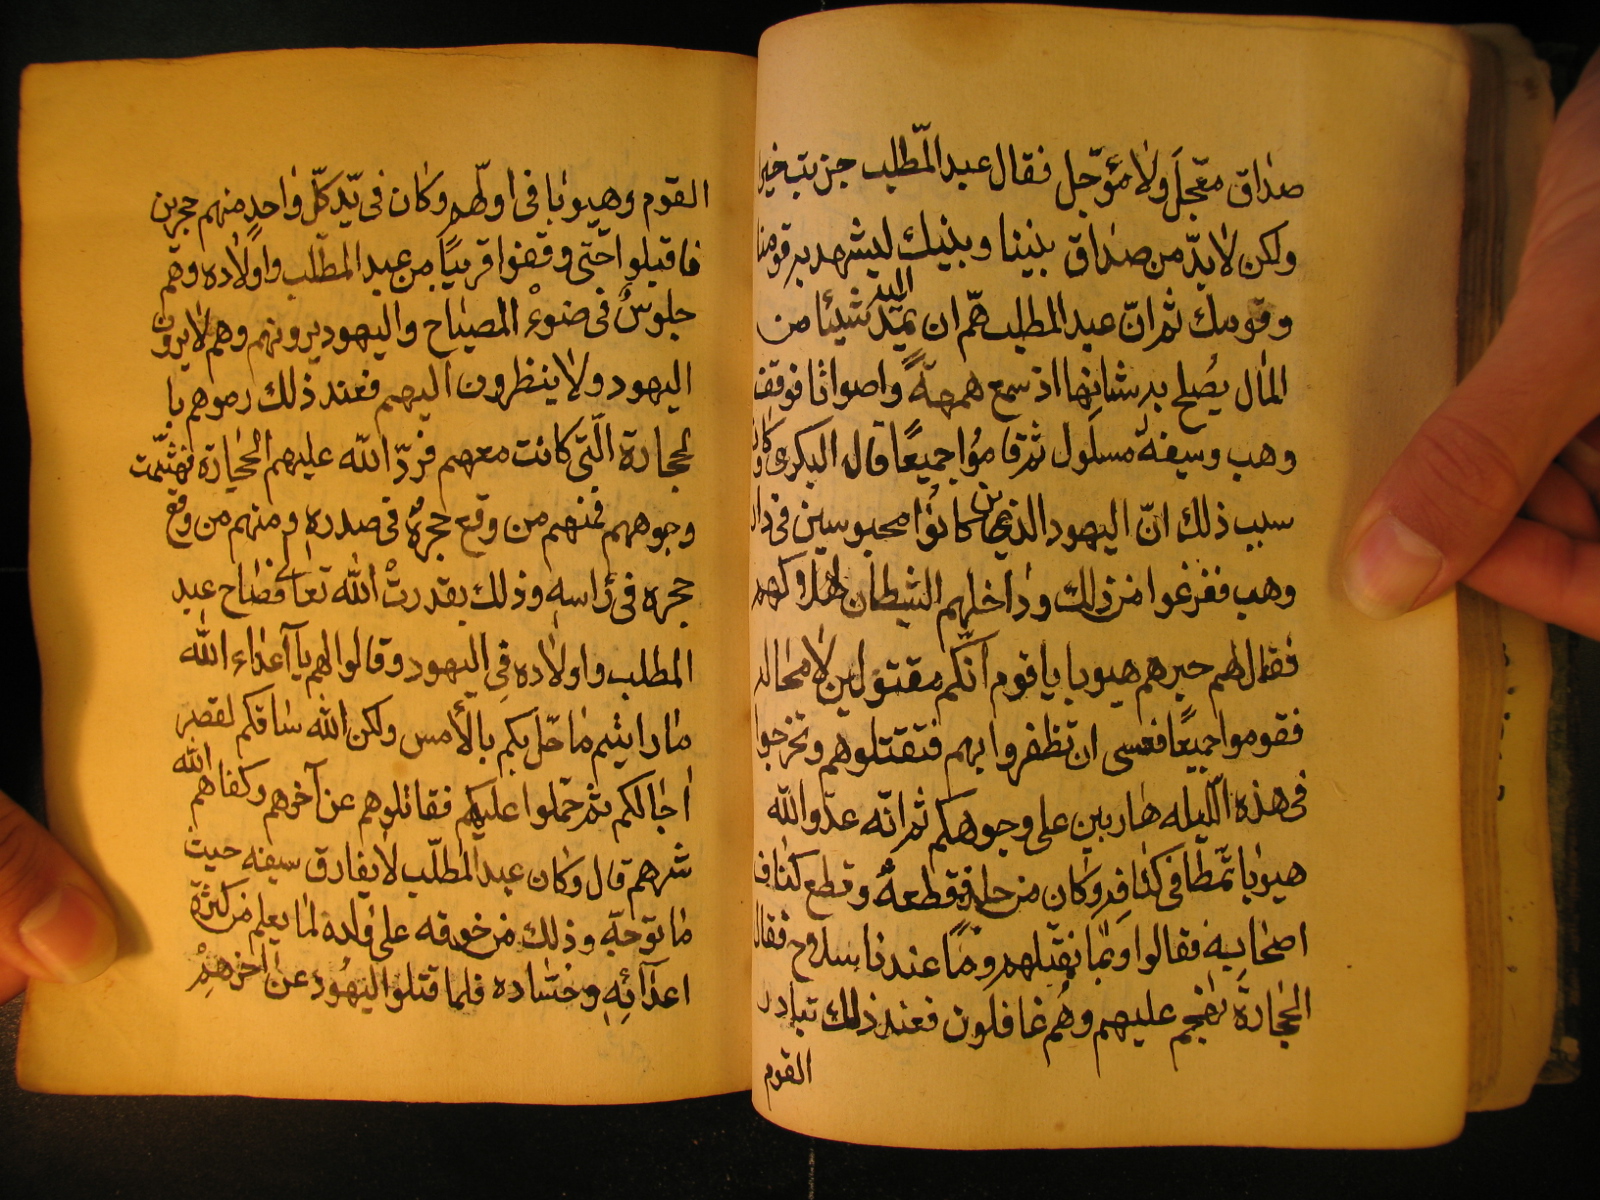 صداق معجل ولا مؤجل فقال عبد المطلب جزيت خيرا
ولكن لا بدّ من صداق بيننا وبينك ليشهد به قومنا
وقومك ثم انّ عبد المطلب همّ ان يمدّ اليه شيئا من
المال يصلح به شانها اذ سمع همهمة واصواتا فوقف
وهب وسيفه مسلول ثم قاموا جميعًا قال البكري وكان
سبب ذلك انّ اليهود الذين كانوا محبوسين في دار
وهب ففزعوا من ذلك وداخلهم الشيطان
فقال لهم حبرهم هيوبا يا قوم انّكم مقتولين لا محاله
فقوموا جميعًا فعسى ان تظفروا بهم فتقتلوهم وتخرجوا
في هذه الليله هاربين على وجوهكم ثم انه عدو الله
هيوبا تمطا في كتافه وكان من جلد فقطعه وقطع كتاف
اصحابه فقالوا وبما نقتلهم وما عندنا سلاح فقال
الحجارة نهجم عليهم وهم غافلون فعند ذلك تبادر
القوم
القوم وهيوبا في اولهم وكان في يد كلّ واحد منهم حجرين
فاقبلوا حتى وقفوا قريبًا من عبد المطلب واولاده وهم
جلوس في ضوء المصباح واليهود يرونهم وهم لا يرون
اليهود ولا ينظرون اليهم فعند ذلك رموهم با
لحجارة الّتي كانت معهم فردّ الله عليهم الحجارة فهشمت
وجوههم فمنهم من وقع حجره في صدره ومنهم من وقع
حجره في راسه وذلك بقدرت الله تعالى فصاح عبد
المطلب واولاده في اليهود وقالوا لهم يا اعداء الله
ما رايتم ما حلّ بكم بالأمس ولكن الله ساقكم لقصر
اجالكم ثم حملوا عليهم فقاتلوهم عن آخرهم وكفاهم الله
شرهم قال وكان عبد المطلّب لا يفارق سيفه حيث
ما توجه وذلك من خوفه على ولده لما يعلم من كثرة
اعدآئه وحسّاده فلما قتلوا اليهود عن اخرهم